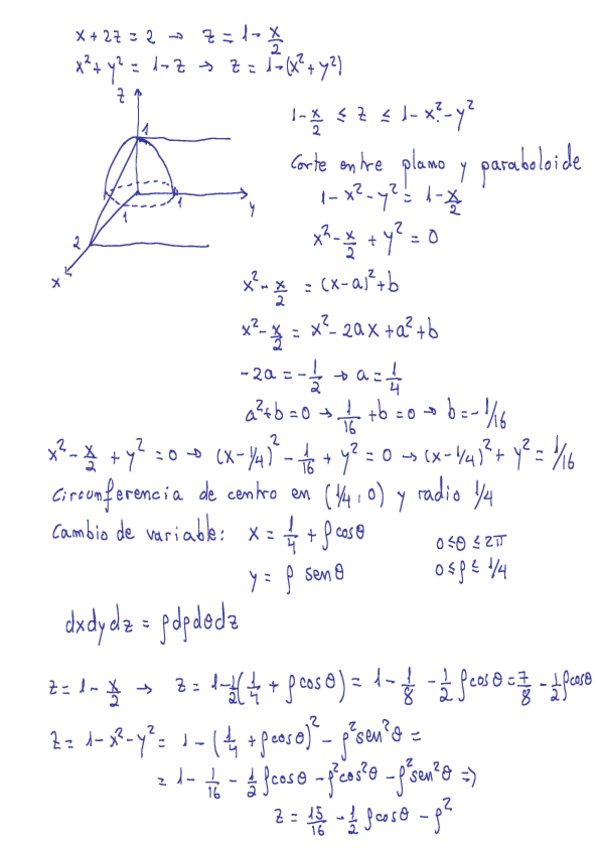 x + 2z = 2 → z = 1 - x/2
x² + y² = 1 - z → z = 1 - (x² + y²)
z
1
1 - x/2 ≤ z ≤ 1 - x² - y²
Corte entre plano y paraboloide
1 - x² - y² = 1 - x/2
1
1
y
x² - x/2 + y² = 0
2
x
x² - x/2 = (x-a)² + b
x² - x/2 = x² - 2ax + a² + b
-2a = -1/2 → a = 1/4
a² + b = 0 → 1/16 + b = 0 → b = -1/16
x² - x/2 + y² = 0 → (x - 1/4)² - 1/16 + y² = 0 → (x - 1/4)² + y² = 1/16
Circunferencia de centro en (1/4, 0) y radio 1/4
Cambio de variable: x = 1/4 + ρ cos θ
0 ≤ θ ≤ 2π
y = ρ sen θ
0 ≤ ρ ≤ 1/4
dxdydz = ρdρdθdz
z = 1 - x/2 → z = 1 - 1/2(1/4 + ρ cos θ) = 1 - 1/8 - 1/2 ρ cos θ = 7/8 - 1/2 ρ cos θ
z = 1 - x² - y² = 1 - (1/4 + ρ cos θ)² - ρ² sen² θ =
= 1 - 1/16 - 1/2 ρ cos θ - ρ² cos² θ - ρ² sen² θ =>
z = 15/16 - 1/2 ρ cos θ - ρ²